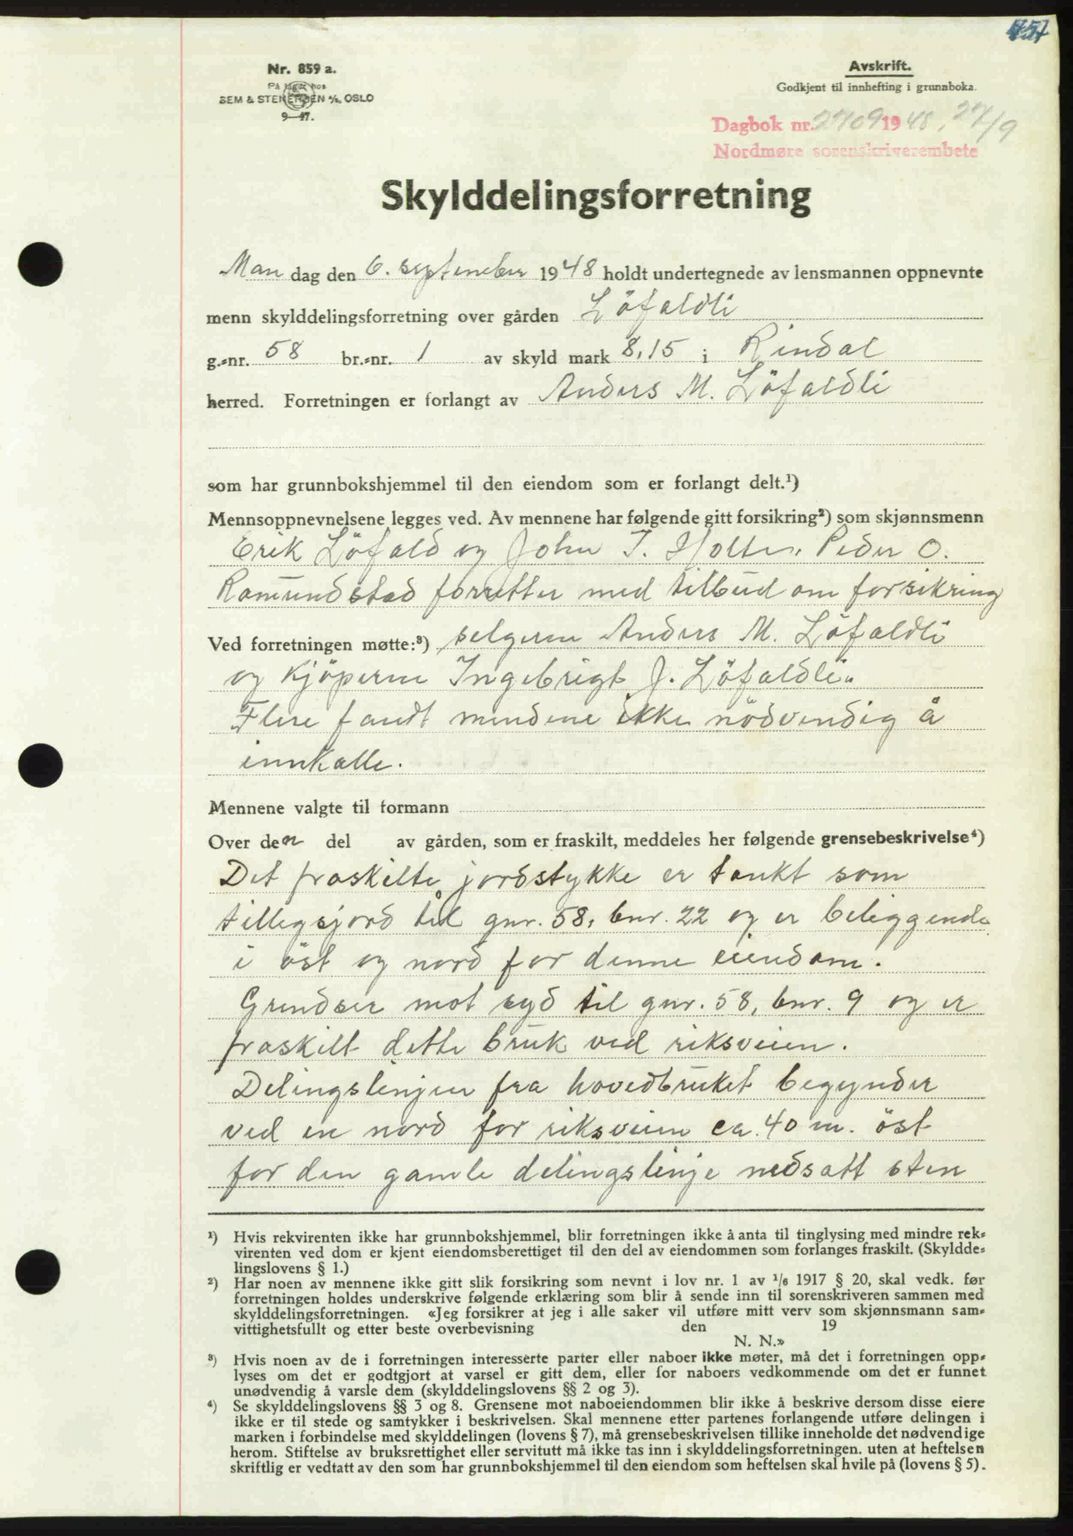 757
Nr. 859 a.
På lager hos
SEM & STENERSEN A/S, OSLO
9—47.
Avskrift.
Godkjent til innhefting i grunnboka.
Dagbok nr. 2709 1948, 27/9
Nordmøre sorenskriverembete
Skylddelingsforretning
Man dag den 6. september 1948 holdt undertegnede av lensmannen oppnevnte
menn skylddelingsforretning over gården Löfaldli
g.-nr. 58 br.-nr. 1 av skyld mark 8,15 i Rindal
herred. Forretningen er forlangt av Anders M. Löfaldli
som har grunnbokshjemmel til den eiendom som er forlangt delt.¹)
Mennsoppnevnelsene legges ved. Av mennene har følgende gitt forsikring²) som skjønnsmenn
Erik Löfald og John J. Holten. Peder O.
Romundstad forretter med tilbud om forsikring
Ved forretningen møtte:³) selgeren Anders M. Löfaldli
og kjöperen Ingebrigt J. Löfaldli.
Flere fandt mendene ikke nödvendig å
innkalle.
Mennene valgte til formann
Over den del av gården, som er fraskilt, meddeles her følgende grensebeskrivelse⁴)
Det fraskilte jordstykke er tenkt som
tillegsjord til gnr. 58, bnr. 22 og er beliggende
i öst og nord for denne eiendom.
Grendser mot syd til gnr. 58, bnr. 9 og er
fraskilt dette bruk ved riksveien.
Delingslinjen fra hovedbruket begynder
ved en nord for riksveien ca. 40 m. öst
for den gamle delingslinje nedsatt sten
¹) Hvis rekvirenten ikke har grunnbokshjemmel, blir forretningen ikke å anta til tinglysing med mindre rek-
virenten ved dom er kjent eiendomsberettiget til den del av eiendommen som forlanges fraskilt. (Skyldde-
lingslovens § 1.)
²) Har noen av mennene ikke gitt slik forsikring som nevnt i lov nr. 1 av 1/6 1917 § 20, skal vedk. før
forretningen holdes underskrive følgende erklæring som blir å sende inn til sorenskriveren sammen med
skylddelingsforretningen. «Jeg forsikrer at jeg i alle saker vil utføre mitt verv som skjønnsmann sam-
vittighetsfullt og etter beste overbevisning den 19
N. N.»
³) Hvis noen av de i forretningen interesserte parter eller naboer ikke møter, må det i forretningen opp-
lyses om det er godtgjort at varsel er gitt dem, eller for naboers vedkommende om det er funnet
unødvendig å varsle dem (skylddelingslovens §§ 2 og 3).
⁴) Se skylddelingslovens §§ 3 og 8. Grensene mot naboeiendommen blir ikke å beskrive dersom disse eiere
ikke er til stede og samtykker i beskrivelsen. Skal mennene etter partenes forlangende utføre delingen i
marken i forbindelse med skylddelingen (lovens § 7), må grensebeskrivelsen tillike inneholde det nødvendige
herom. Stiftelse av bruksrettighet eller servitutt må ikke tas inn i skylddelingsforretningen. uten at heftelsen
skriftlig er vedtatt av den som har grunnbokshjemmel til den eiendom som heftelsen skal hvile på (lovens § 5).